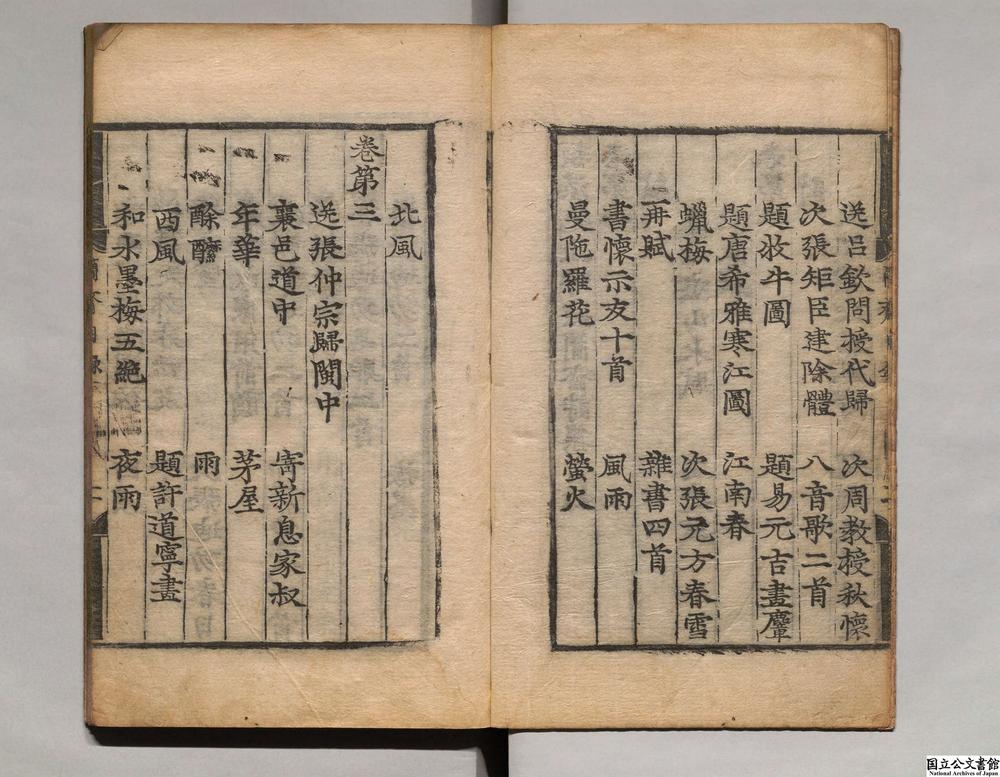 送呂欽問授代歸　次周教授秋懷
次張矩臣建除體　八音歌二首
題牧牛圖　題易元古畫麞
題唐希雅寒江圖　江南春
蠟梅　次張元方春雪
再賦　雜書四首
書懷示友十首　風雨
曼陁羅花　螢火
北風
卷第三
送張仲宗歸閩中
襄邑道中　寄新息家叔
年華　茅屋
酴醿　雨
西風　題許道寧畫
和水墨梅五絶　夜雨
国立公文書館
National Archives of Japan